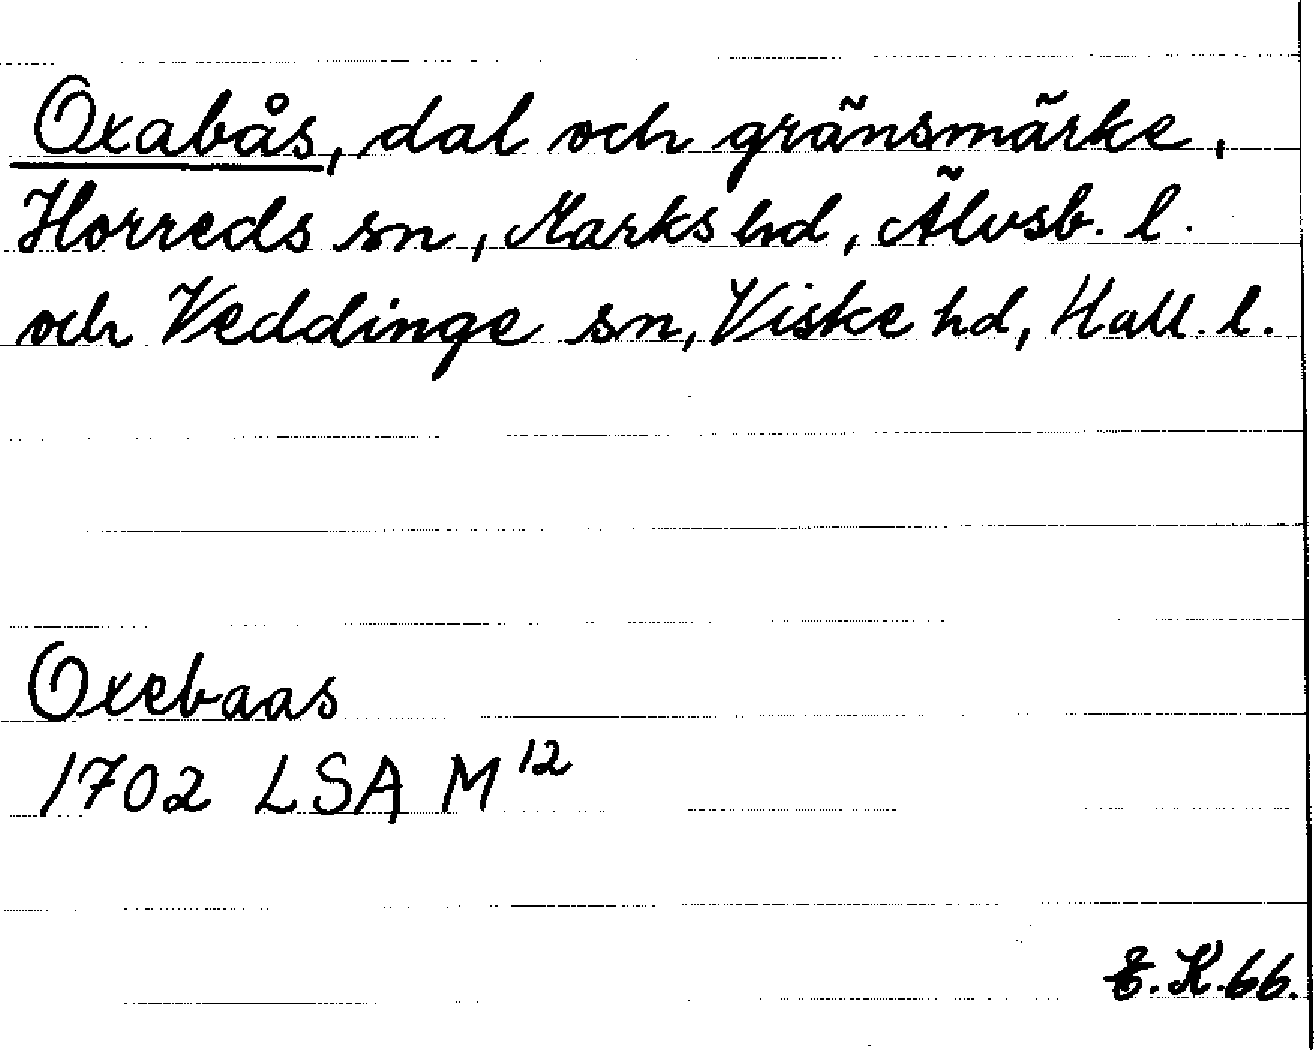 Oxabås, dal och gränsmärke,
Horreds sn, Marks hd, Älvsb. l.
och Veddinge sn, Viske hd, Hall. l.
Oxebaas
1702 LSA M¹²
E.K.66.